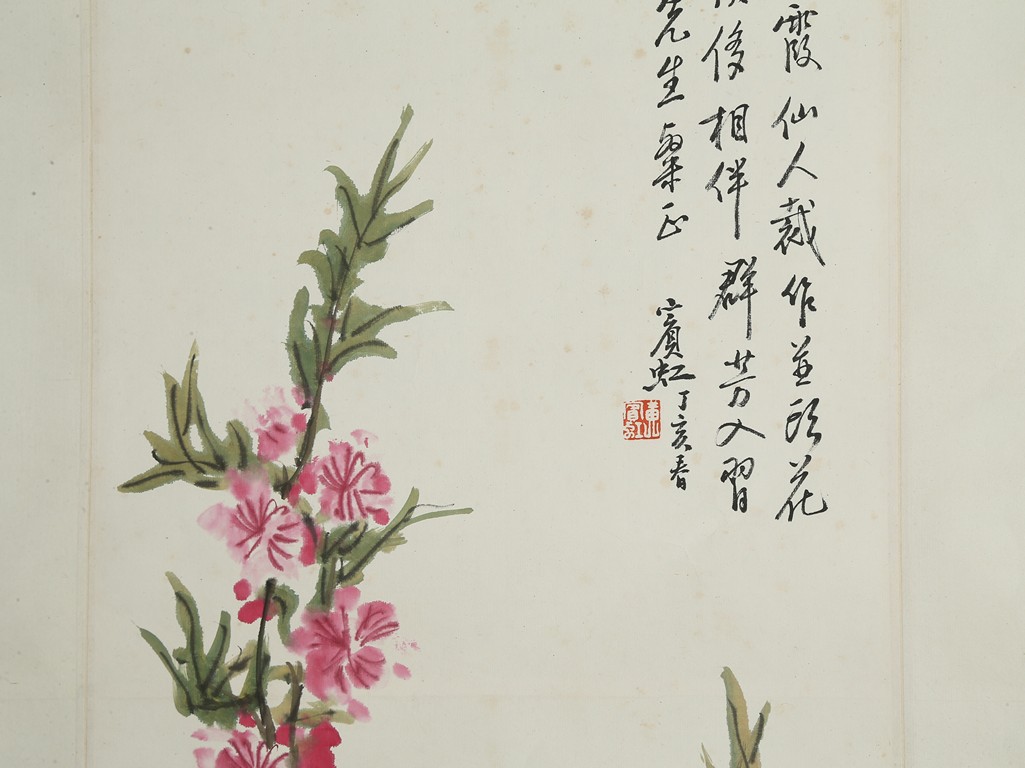 霞仙人裁作並頭花
俊相伴群芳入習
先生粲正
賓虹丁亥春
黃山賓虹